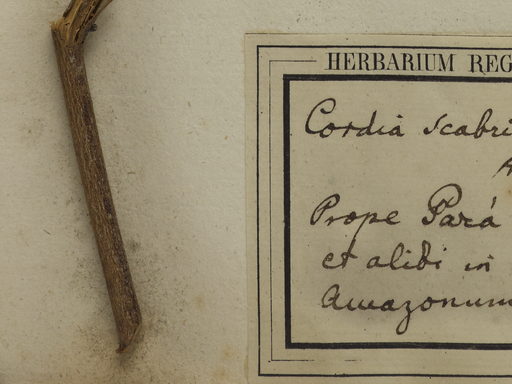 HERBARIUM REG
Cordia scabri
Prope Pará
et alibi in
Amazonum